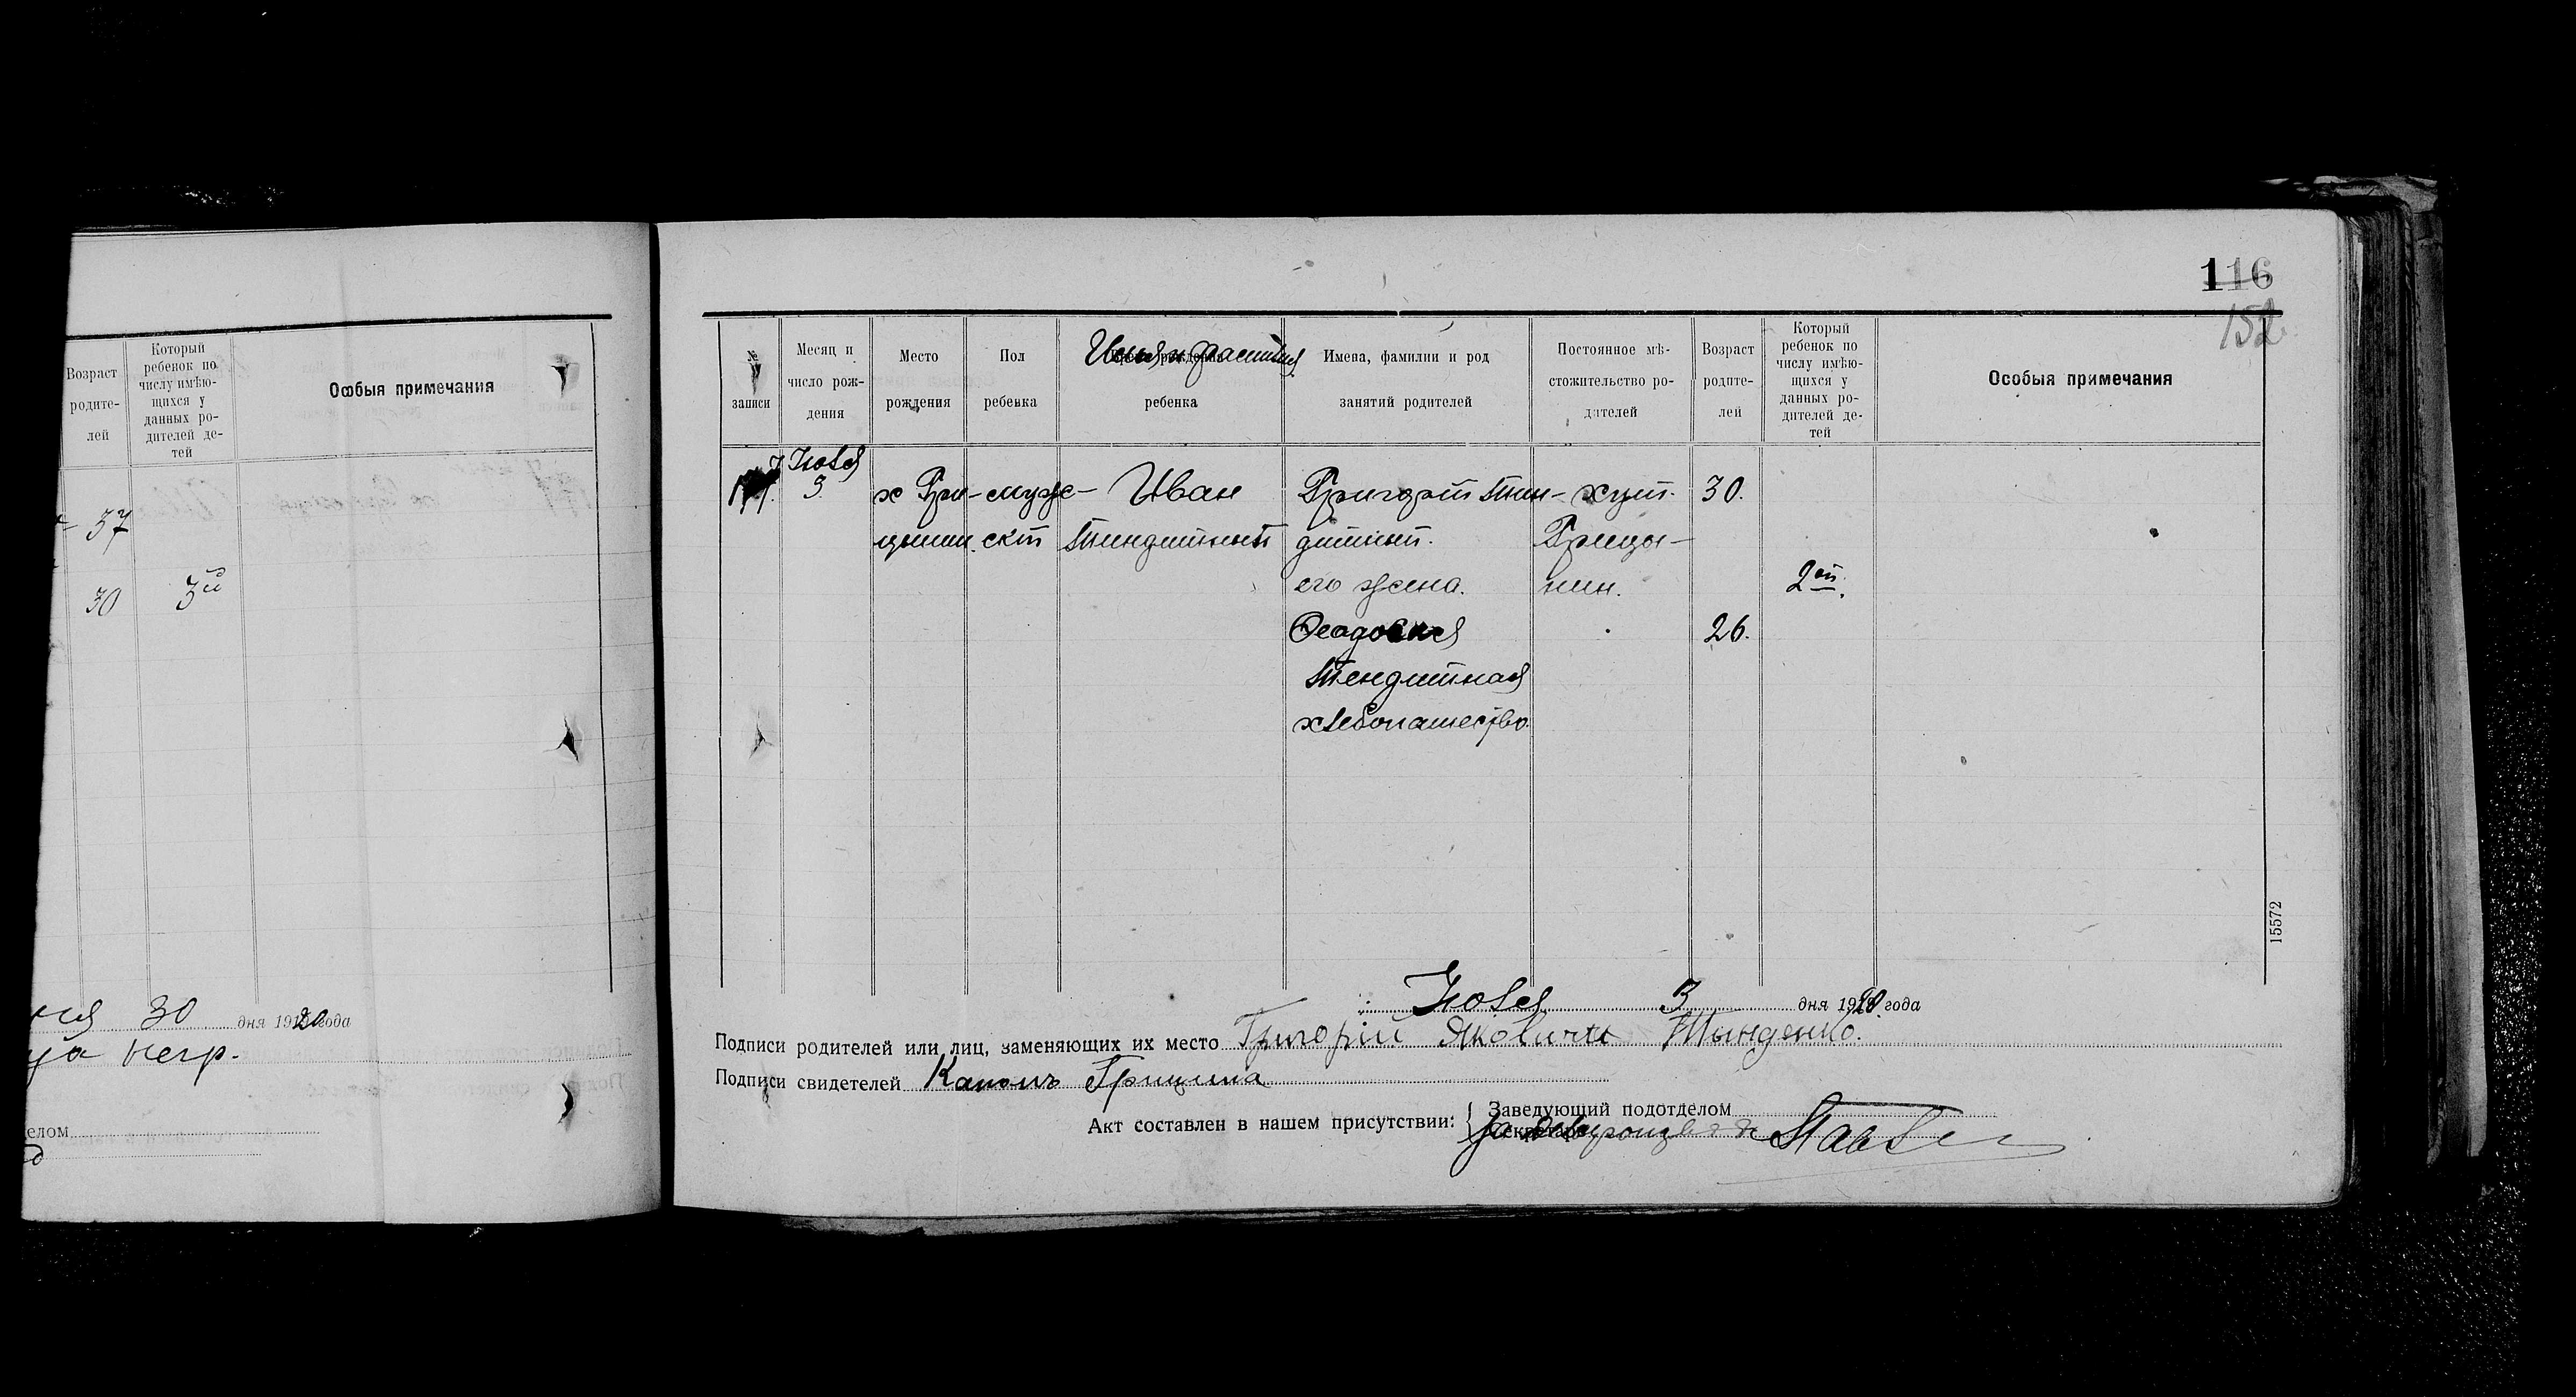 Возраст
родите-
лей
Который
ребенок по
числу имѣю-
щихся у
данных ро-
дителей де-
тей
Особыя примечания
37
30
3й
30 дня 1920 года
негр.
елом
116
152
№
записи
Месяц и
число рож-
дения
Место
рождения
Пол
ребенка
Имя и фамилия
ребенка
Имена, фамилии и род
занятий родителей
Постоянное мѣ-
стожительство ро-
дителей
Возраст
родите-
лей
Который
ребенок по
числу имѣю-
щихся у
данных ро-
дителей де-
тей
Особыя примечания
Июля
3
х Гри-
цынин.
мужс-
скт
Иван
Григорий
его жена.
хлебопашество.
хут.
Грицы-
нин.
30.
26.
2ой.
15572
Июля 3 дня 1920 года
Подписи родителей или лиц, заменяющих их место Григорій Яковичи Тынденко.
Подписи свидетелей Грицина
Акт составлен в нашем присутствии:
Заведующий подотделом
Секретарь